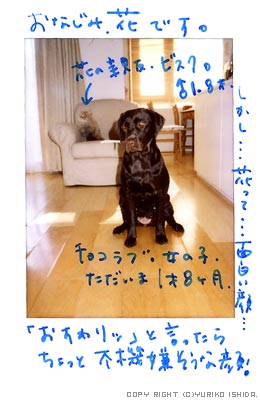 おなじみ、花です。
花の親友・ビスク。
しかし…花って…面白い顔…
チョコラブ、女の子、
ただいま1才8ヶ月。
「おすわりッ」と言ったら
ちょっと不機嫌そうな顔!
COPY RIGHT (C)YURIKO ISHIDA.